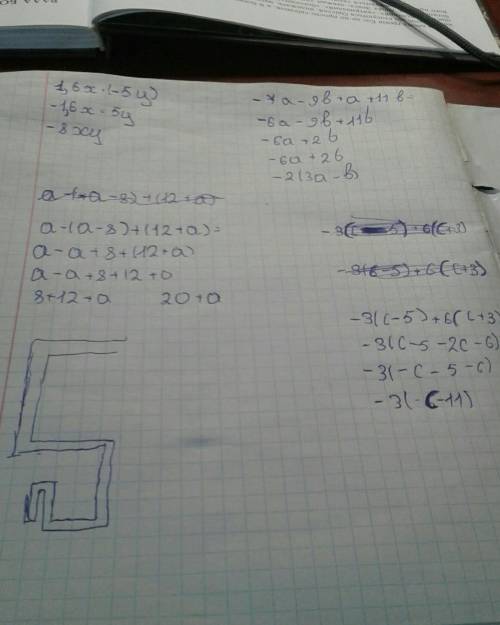 1,6x·(-5y)
-1,6x·5y
-8xy
a-(a-8)+(12+a)
a-(a-8)+(12+a)=
a-a+8+(12+a)
a-a+8+12+a
8+12+a 20+a
-7a-9b+a+11b=
-6a-9b+11b
-6a+2b
-6a+2b
-2(3a-b)
-3(c-5)+6(c+3)
-3(c-5)+6(c+3)
-3(c-5)+6(c+3)
-3(c-5-2c-6)
-3(-c-5-6)
-3(-c-11)